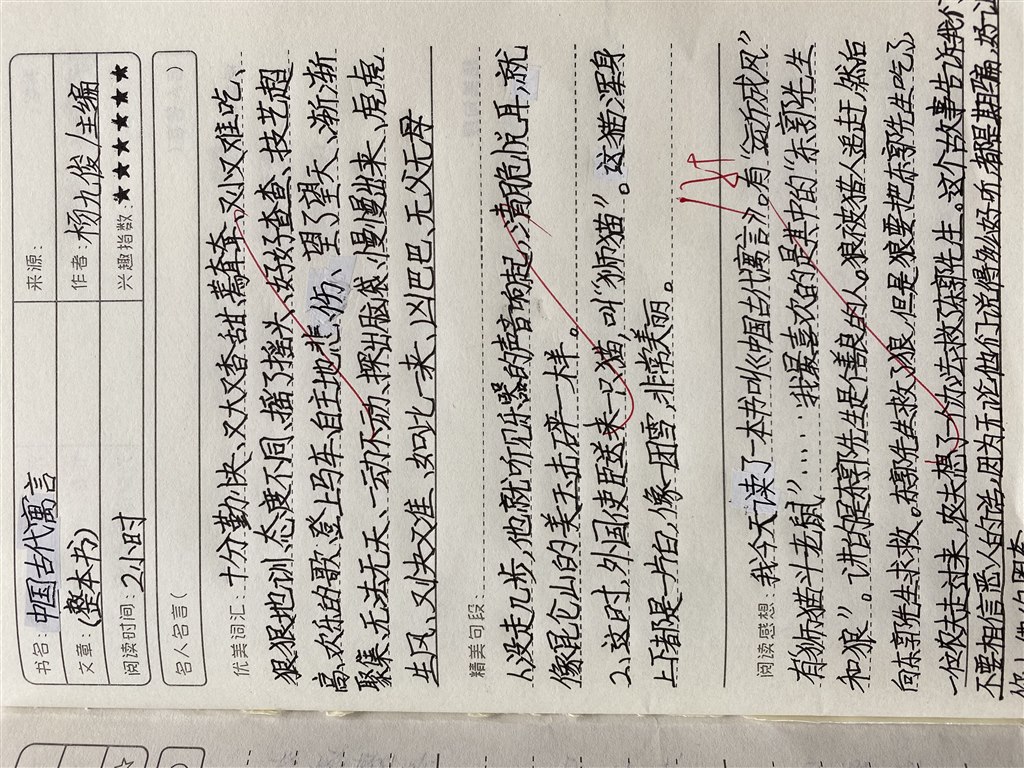 书名：中国古代寓言
来源：
文章：(整本书)
作者：杨九俊/主编
阅读时间：2小时
兴趣指数：★★★★★★
名人名言( )
优美词汇：十分勤快、又大又香甜、蔫耷耷、又小又难吃、
狠狠地训、态度不同、摇了摇头、好好查查、技艺超
高、欢乐的歌、登上马车、自主地悲伤、望了望天、渐渐
聚集、无法无天、一动不动、探出脑袋、慢慢出来、虎虎
生风、又快又准、如此一来、凶巴巴、无父无母
精美句段：
1、没走几步，他就听见乐器的声音响起，清脆悦耳，就
像昆仑山的美玉击碎一样。
2、这时，外国使臣送来一只猫，叫“狮猫”。这猫浑身
上都是一片白，像一团雪，非常美丽。
阅读感想：我今天读了一本书叫《中国古代寓言》。有“
有狮猫斗老鼠”……我最喜欢的是其中的“东郭先生
和狼”。讲的是东郭先生是个善良的人。狼被猎人追赶，然后
向东郭先生求救。东郭先生救了狼，但是狼要把东郭先生吃了，
一位农夫走过来，农夫想了一个办法救了东郭先生。这个故事告诉我们
不要相信恶人的话，因为无论他们说得多么好听，都是期骗，